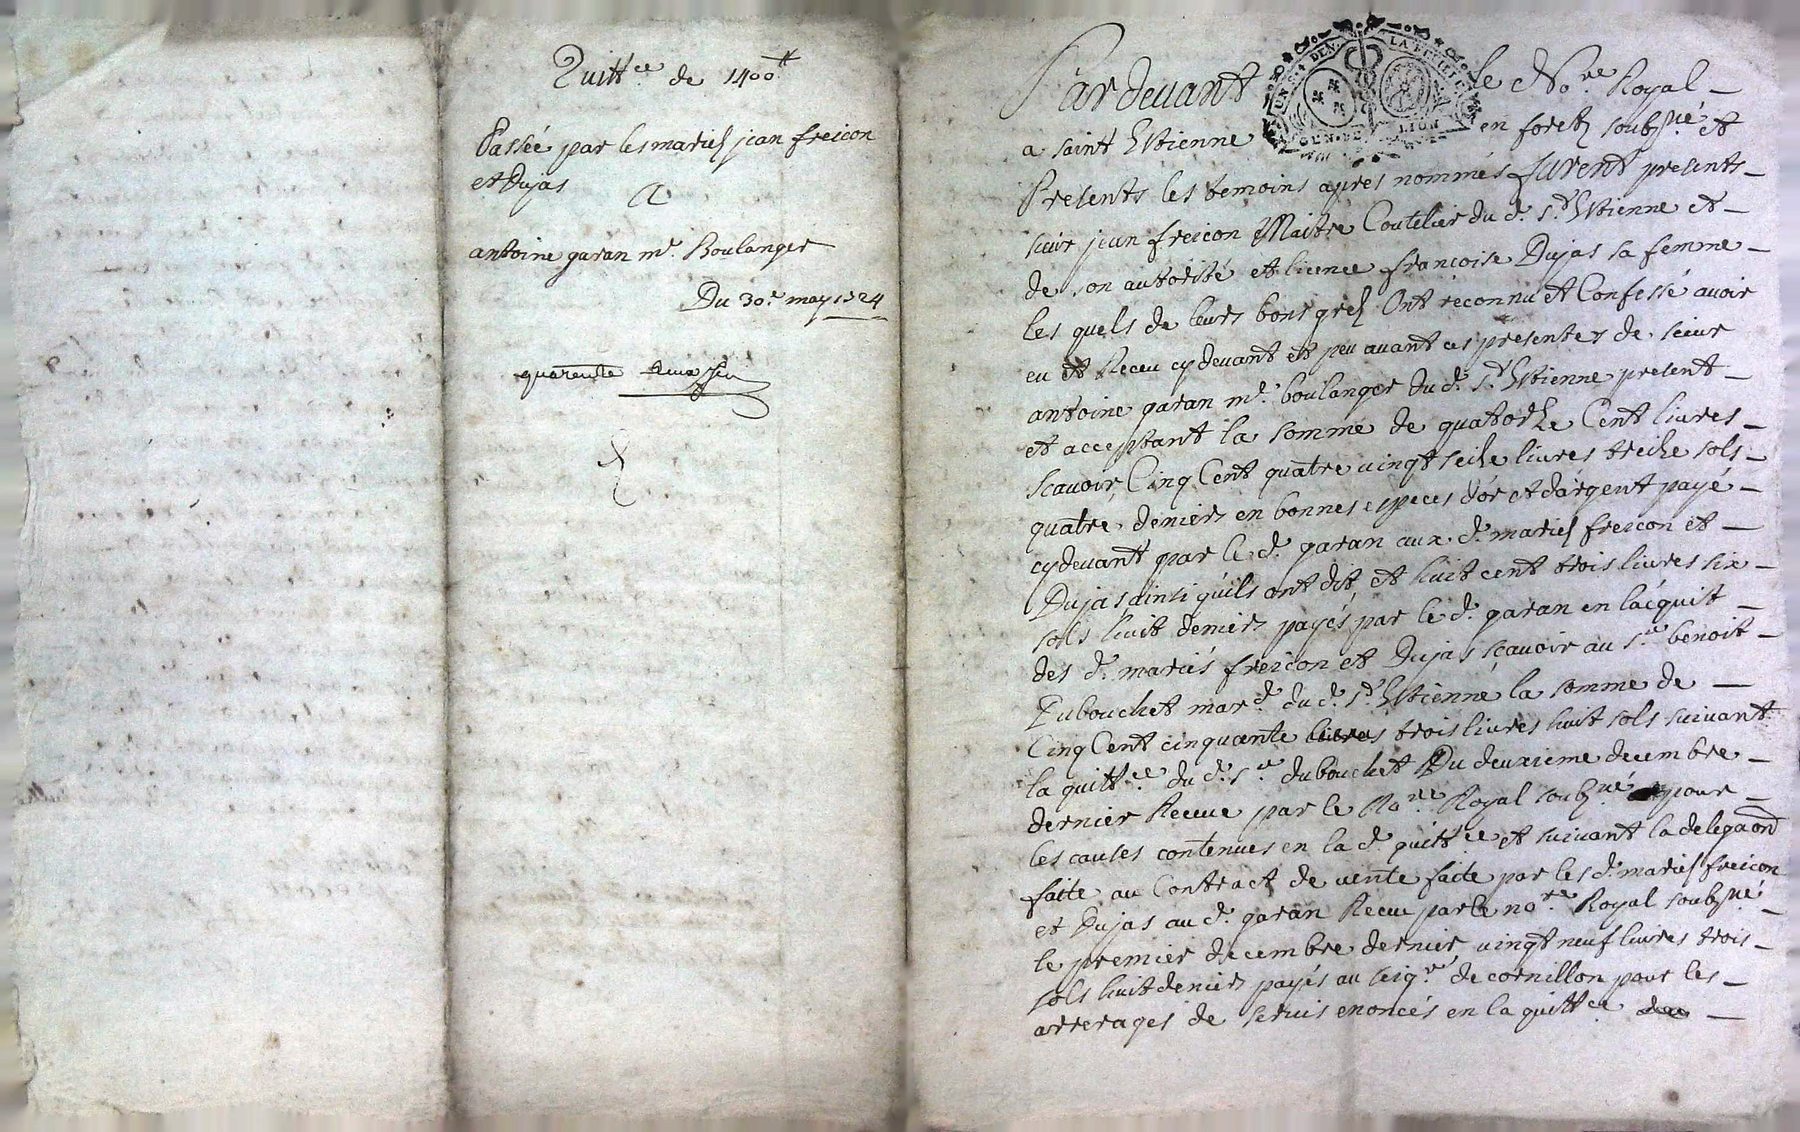 Quitt.ce de 1400 ₶
Passée par les mariés jean freicon
et Dujas
A
antoine garan m.e Boulanger
Du 30.e may 1724
quarente deux
Pardevant le No.re Royal
a saint Estienne en forest soubs.né et
Presents les temoins apres nommés furent presents
sieur jean freicon Maitre Coutelier du d. S.t Estienne et
de son autorité et licence francoise Dujas sa femme
les quels de leurs bons grés Ont reconnu et Confessé avoir
eu et Receu cy devant et peu avant ces presentes de sieur
antoine garan m.e boulanger du d. S.t Estienne present
et acceptant la somme de quatorze Cent livres
scavoir Cinq Cent quatre vingt seize livres treize sols
quatre deniers en bonnes especes d'or et d'argent payé
cy devant par le d. garan aux d. mariés freicon et
Dujas ainsi quils ont dit et huit cent trois livres six
sols huit deniers payés par le d. garan en l'acquit
des d. mariés freicon et Dujas scavoir au s.r benoit
Dubouchet mar.d du d. S.t Estienne la somme de
Cinq Cent cinquante livres trois livres huit sols suivant
la quitt.ce du d. s.r dubouchet Du deuxieme decembre
dernier Receue par le No.re Royal soubs.né pour
les causes contenues en la d. quitt.ce et suivant la delegaon
faite au Contract de vente faite par les d. mariés freicon
et Dujas au d. garan Receu par le no.re Royal soubs.né
le premier decembre dernier vingt neuf livres trois
sols huit deniers payés au seig.r de cornillon pour les
arrerages de servis enoncés en la quitt.ce
UN S. 4 DEN. LA FEUILLE
GEN. DE LION